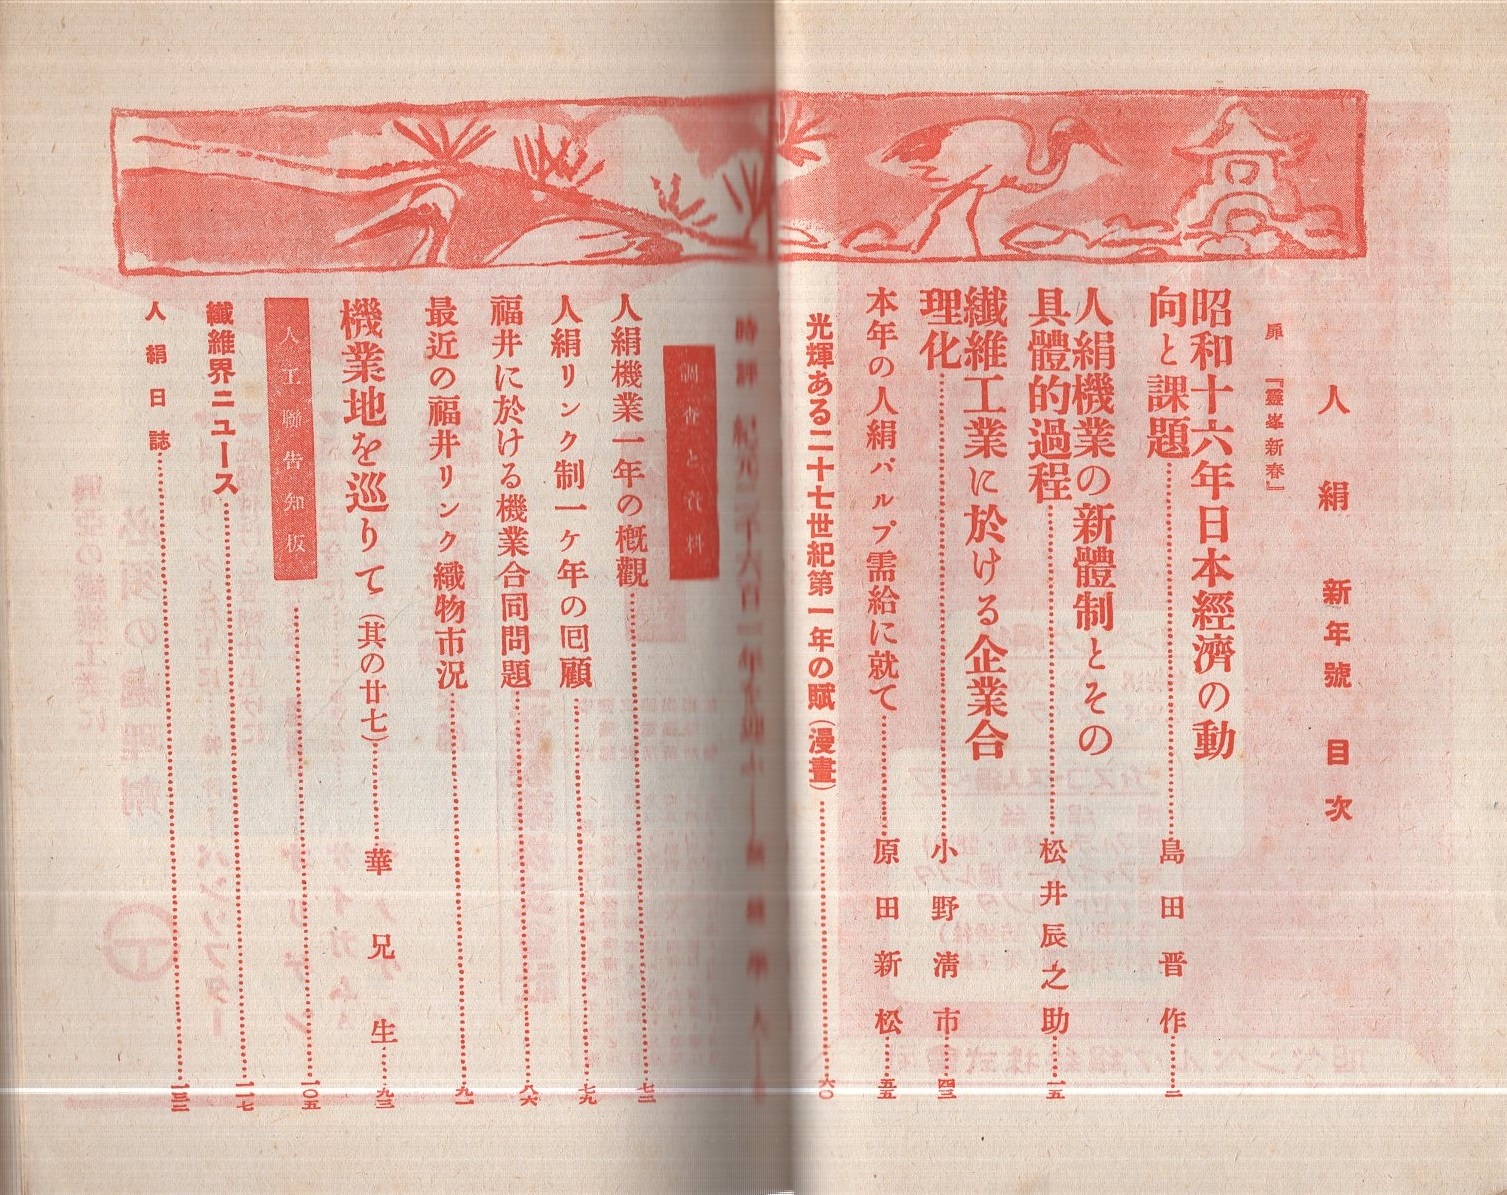 人絹 新年號 目次
扉 『靈峯新春』
昭和十六年日本經濟の動
向と課題……島田晋作……二
人絹機業の新體制とその
具體的過程……松井辰之助……一五
纖維工業に於ける企業合
理化……小野清市……四三
本年の人絹パルプ需給に就て……原田新松……五五
光輝ある二十七世紀第一年の賦(漫畫)……六〇
時評 紀元二千六百一年を迎ふ
調査と資料
人絹機業一年の概觀……七二
人絹リンク制一ケ年の回顧……七九
福井に於ける機業合同問題……八六
最近の福井リンク織物市況……九一
機業地を巡りて(其の廿七)……華兄生……九三
人工聯告知板……一〇五
纖維界ニュース……一一七
人絹日誌……一三三